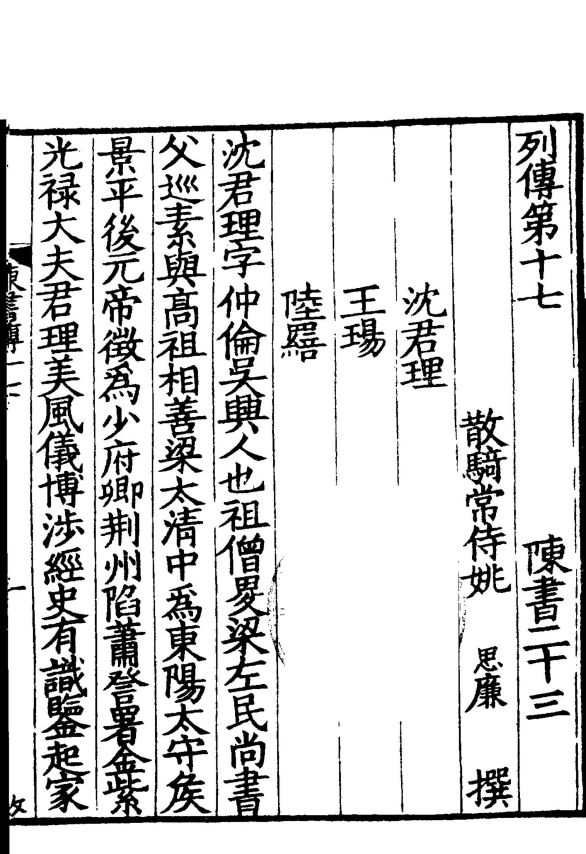 列傳第十七　陳書二十三
散騎常侍姚　思廉　撰
沈君理
王瑒
陸繕
沈君理字仲倫吳興人也祖僧畟梁左民尚書
父巡素與髙祖相善梁太清中爲東陽太守侯
景平後元帝徵爲少府卿荆州陷蕭詧署金紫
光禄大夫君理美風儀博涉經史有識鑒起家
陳書傳十七
一